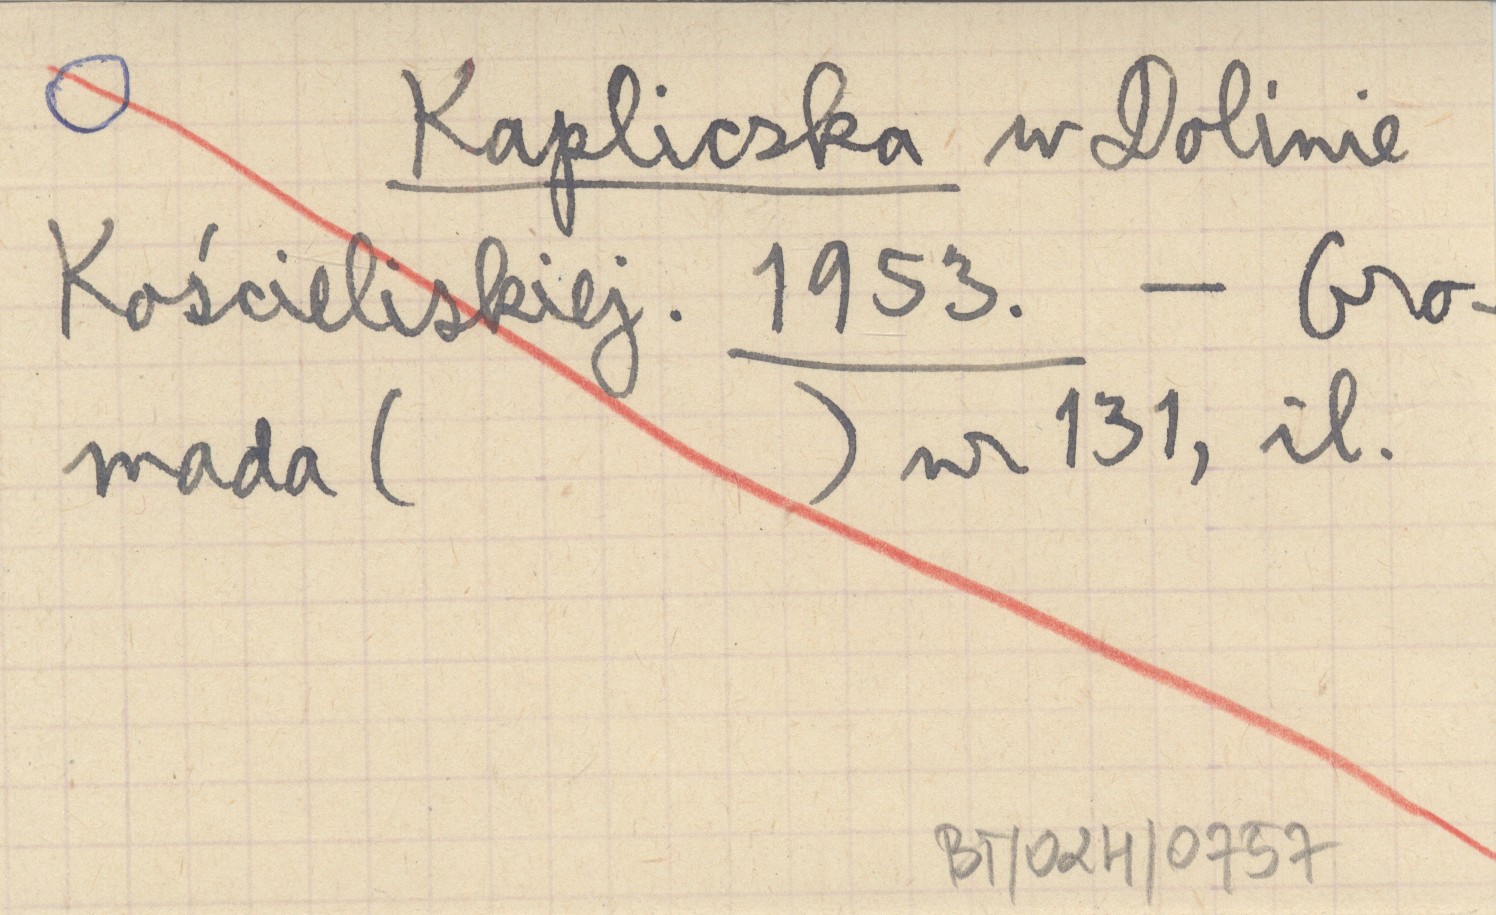 Kapliczka w Dolinie
Kościeliskiej. 1953. — Gro-
mada ( ) nr 131, il.
BT/02H/0757